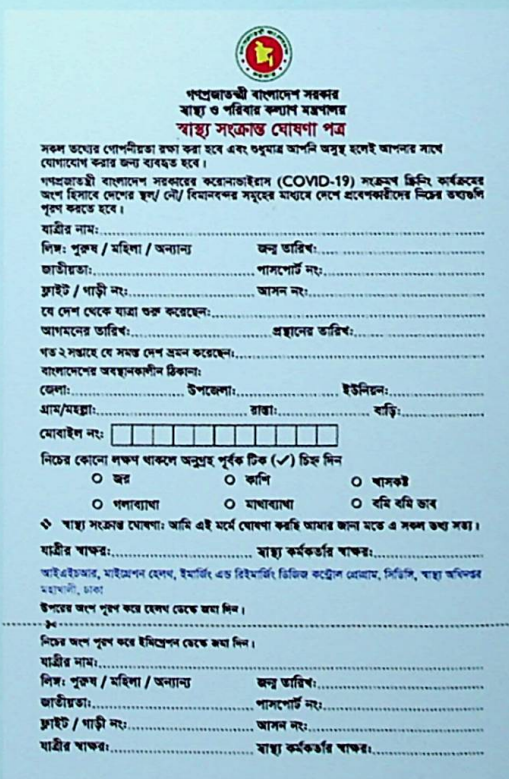 গণপ্রজাতন্ত্রী বাংলাদেশ সরকার
স্বাস্থ্য ও পরিবার কল্যাণ মন্ত্রণালয়
স্বাস্থ্য সংক্রান্ত ঘোষণা পত্র
সকল তথ্যের গোপনীয়তা রক্ষা করা হবে এবং শুধুমাত্র আপনি অসুস্থ হলেই আপনার সাথে
যোগাযোগ করার জন্য ব্যবহৃত হবে।
গণপ্রজাতন্ত্রী বাংলাদেশ সরকারের করোনাভাইরাস (COVID-19) সংক্রমণ স্ক্রিনিং কার্যক্রমের
অংশ হিসাবে দেশের স্থল/ নৌ/ বিমানবন্দর সমূহের মাধ্যমে দেশে প্রবেশকারীদের নিচের তথ্যগুলি
পূরণ করতে হবে।
যাত্রীর নাম:
লিঙ্গ: পুরুষ / মহিলা / অন্যান্য জন্ম তারিখ:
জাতীয়তা: পাসপোর্ট নং:
ফ্লাইট / গাড়ী নং: আসন নং:
যে দেশ থেকে যাত্রা শুরু করেছেন:
আগমনের তারিখ: প্রস্থানের তারিখ:
গত ২ সপ্তাহে যে সমস্ত দেশ ভ্রমন করেছেন:
বাংলাদেশের অবস্থানকালীন ঠিকানা:
জেলা: উপজেলা: ইউনিয়ন:
গ্রাম/মহল্লা: রাস্তা: বাড়ি:
মোবাইল নং:
নিচের কোনো লক্ষণ থাকলে অনুগ্রহ পূর্বক টিক (✓) চিহ্ন দিন
জ্বর কাশি শ্বাসকষ্ট
গলাব্যাথা মাথাব্যাথা বমি বমি ভাব
❖ স্বাস্থ্য সংক্রান্ত ঘোষণা: আমি এই মর্মে ঘোষণা করছি আমার জানা মতে এ সকল তথ্য সত্য।
যাত্রীর স্বাক্ষর: স্বাস্থ্য কর্মকর্তার স্বাক্ষর:
আইএইচআর, মাইগ্রেশন হেলথ, ইমার্জিং এন্ড রিইমার্জিং ডিজিজ কন্ট্রোল প্রোগ্রাম, সিডিসি, স্বাস্থ্য অধিদপ্তর
মহাখালী, ঢাকা
উপরের অংশ পূরণ করে হেলথ ডেস্কে জমা দিন।
নিচের অংশ পূরণ করে ইমিগ্রেশন ডেস্কে জমা দিন।
যাত্রীর নাম:
লিঙ্গ: পুরুষ / মহিলা / অন্যান্য জন্ম তারিখ:
জাতীয়তা: পাসপোর্ট নং:
ফ্লাইট / গাড়ী নং: আসন নং:
যাত্রীর স্বাক্ষর: স্বাস্থ্য কর্মকর্তার স্বাক্ষর: